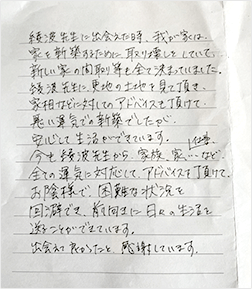 綾波先生に出会えた時、我が家は、
家を新築するために取り壊しをしていて、
新しい家の間取り等も全て決まっていました。
綾波先生に更地の土地を見て頂き、
家相などに対してのアドバイスを頂けて、
悪い運気での新築でしたが、
安心して生活ができています。
今も綾波先生から、家族、家、仕事…など、
全ての運気に対応して、アドバイスを頂けて、
お陰様で、困難な状況を
回避でき、前向きに日々の生活を
送ることができています。
出会えて良かったと、感謝しています。